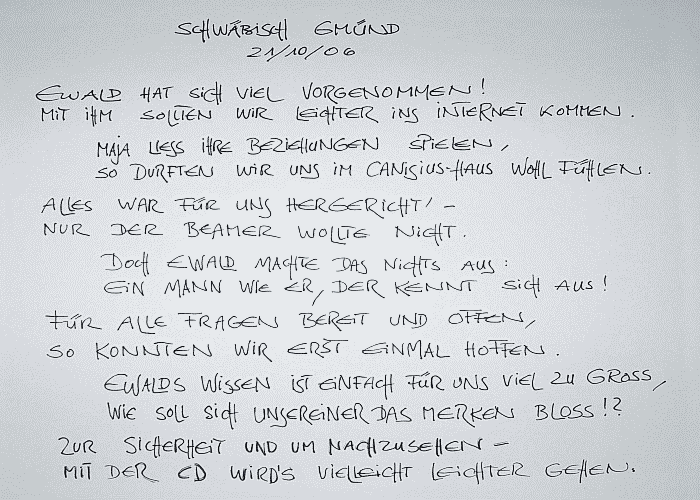 SCHWÄBISCH GMÜND
21/10/06
EWALD HAT SICH VIEL VORGENOMMEN!
MIT IHM SOLLTEN WIR LEICHTER INS INTERNET KOMMEN.
MAJA LIESS IHRE BEZIEHUNGEN SPIELEN,
SO DURFTEN WIR UNS IM CANISIUS-HAUS WOHL FÜHLEN.
ALLES WAR FÜR UNS HERGERICHT' –
NUR DER BEAMER WOLLTE NICHT.
DOCH EWALD MACHTE DAS NICHTS AUS:
EIN MANN WIE ER, DER KENNT SICH AUS!
FÜR ALLE FRAGEN BEREIT UND OFFEN,
SO KONNTEN WIR ERST EINMAL HOFFEN.
EWALDS WISSEN IST EINFACH FÜR UNS VIEL ZU GROSS,
WIE SOLL SICH UNSEREINER DAS MERKEN BLOSS!?
ZUR SICHERHEIT UND UM NACHZUSEHEN –
MIT DER CD WIRD'S VIELLEICHT LEICHTER GEHEN.